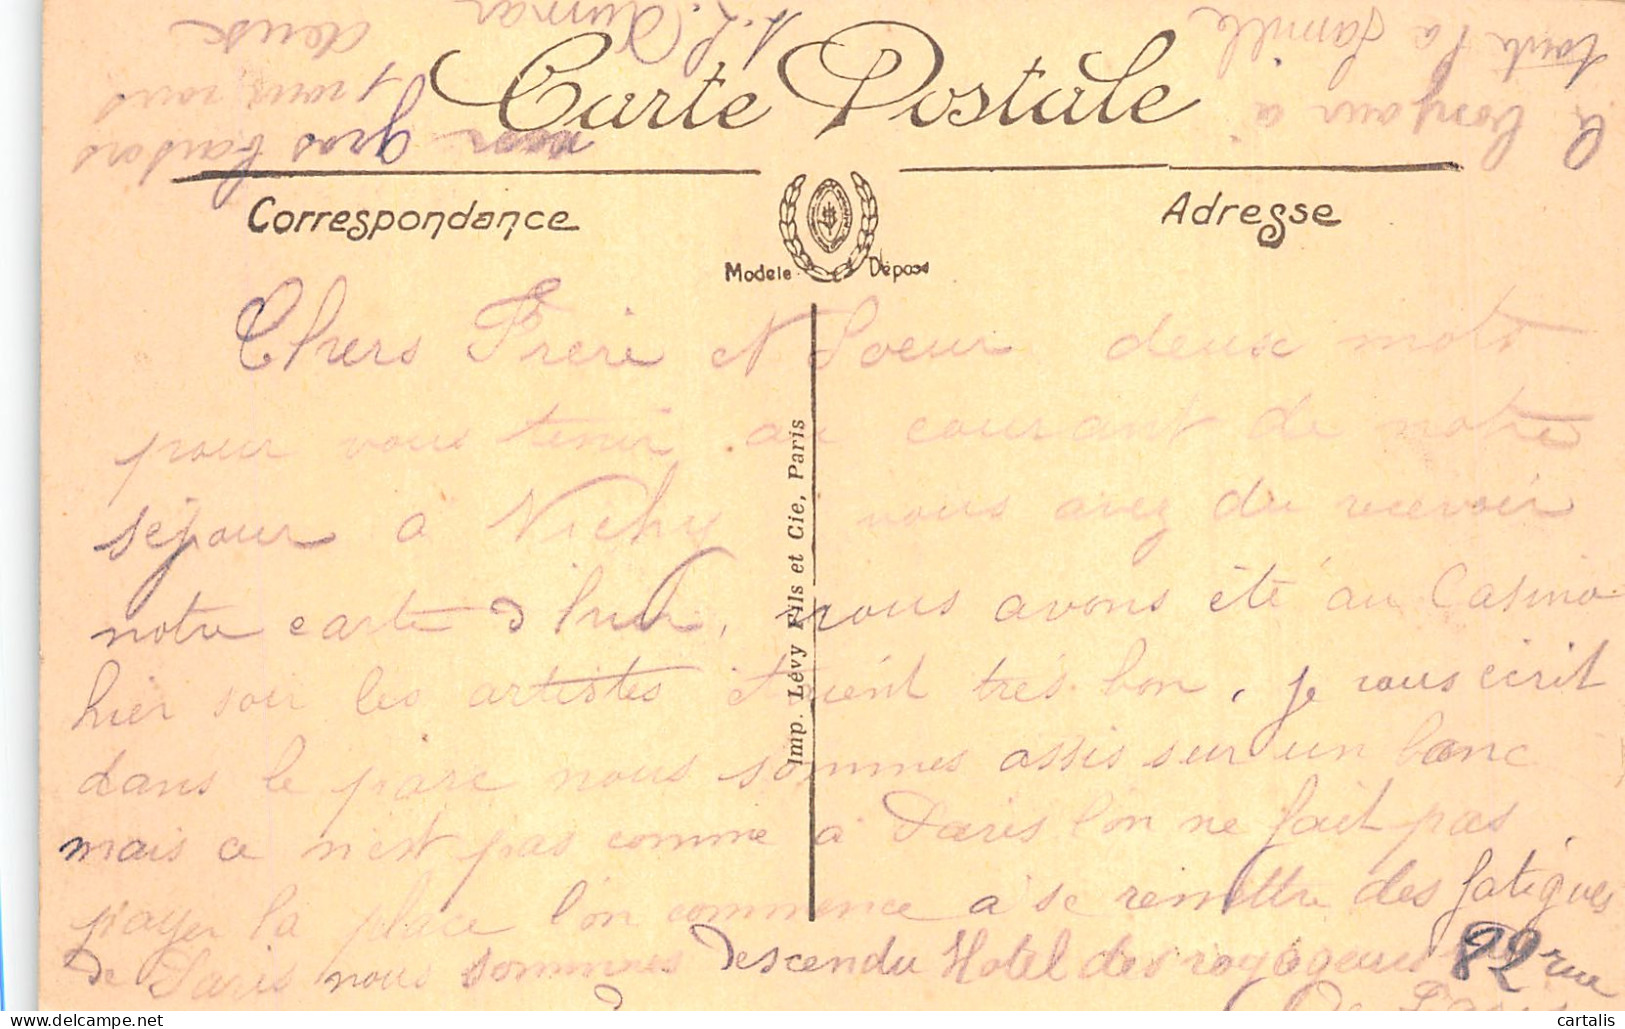 Carte Postale
Correspondance
Adresse
Modèle Déposé
Imp. Lévy Fils et Cie, Paris
Chers Frère et Soeur deux mots
pour vous tenir au courant de notre
séjour a Vichy vous avez du recevoir
notre carte d'hier, nous avons été au Casino
hier soir les artistes étaient très bon, je vous ecrit
dans le parc nous sommes assis sur un banc
mais ce n'est pas comme a Paris l'on ne fait pas
payer la place l'on commence a se remettre des fatigues
de Paris nous sommes descendu Hotel des voyageurs 82 rue
De Paris
le bonjour a
toute la famille
gros baisers
a vous
deux
cartalis